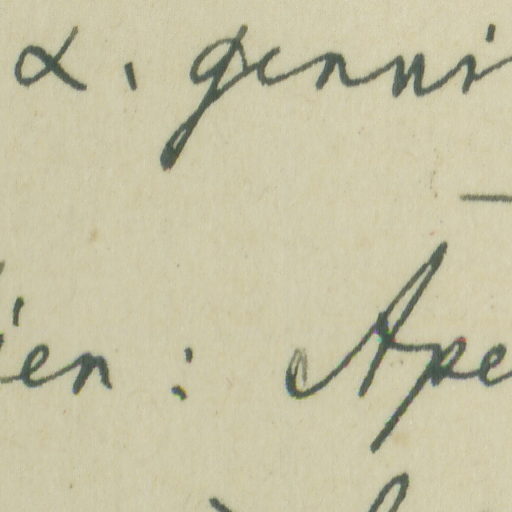 α. genui
ien: Ape